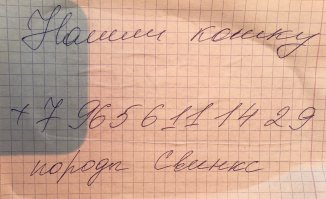 Нашли кошку
+7 965 611 14 29
породы Свинкс